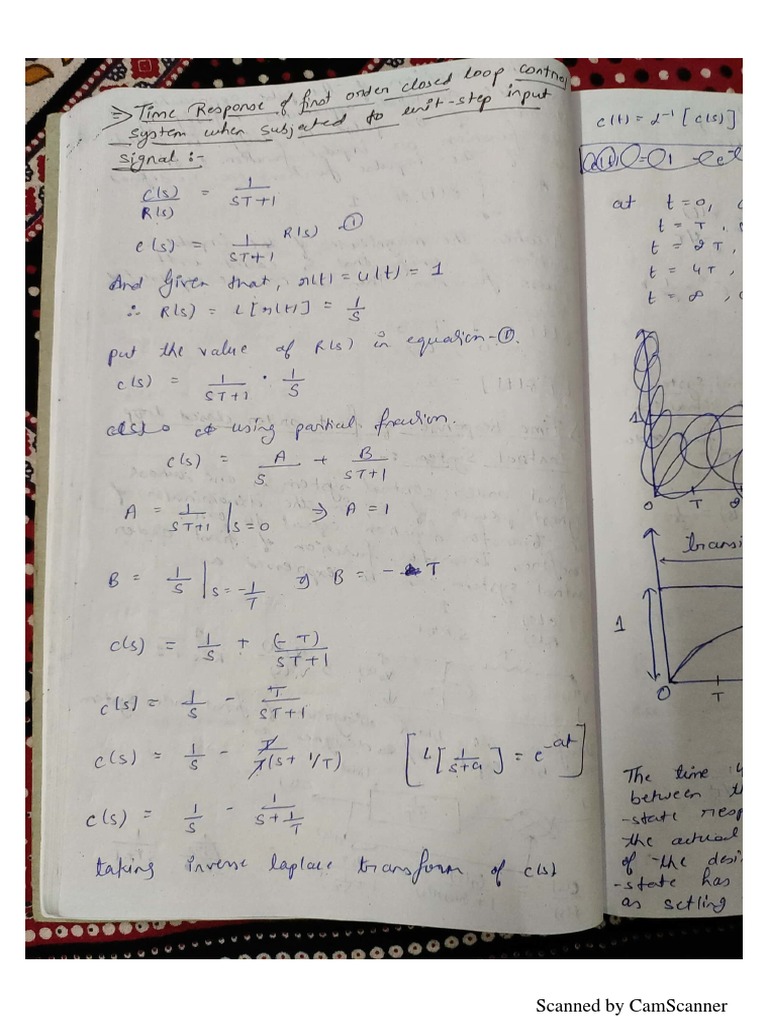 => Time Response of first order closed loop control
system when subjected to unit-step input
signal :-
C(s)/R(s) = 1/ST+1
C(s) = 1/ST+1 R(s) -①
And Given that, r(t) = u(t) = 1
∴ R(s) = L[r(t)] = 1/S
put the value of R(s) in equation-①.
C(s) = 1/ST+1 · 1/S
using partial fraction.
C(s) = A/S + B/ST+1
A = 1/ST+1 |S=0 => A = 1
B = 1/S |S=-1/T => B = - T
C(s) = 1/S + (-T)/ST+1
C(s) = 1/S - T/ST+1
C(s) = 1/S - T/T(S+ 1/T) [L[1/S+a] = e^-at]
C(s) = 1/S - 1/S+1/T
taking inverse laplace transform of C(s)
c(t) = L^-1 [C(s)]
at t = 0,
t = T,
t = 2T,
t = 4T,
t = ∞,
1
0 T
1
0 T
The time
between
-state
the actual
of the
-state has
as settling
Scanned by CamScanner